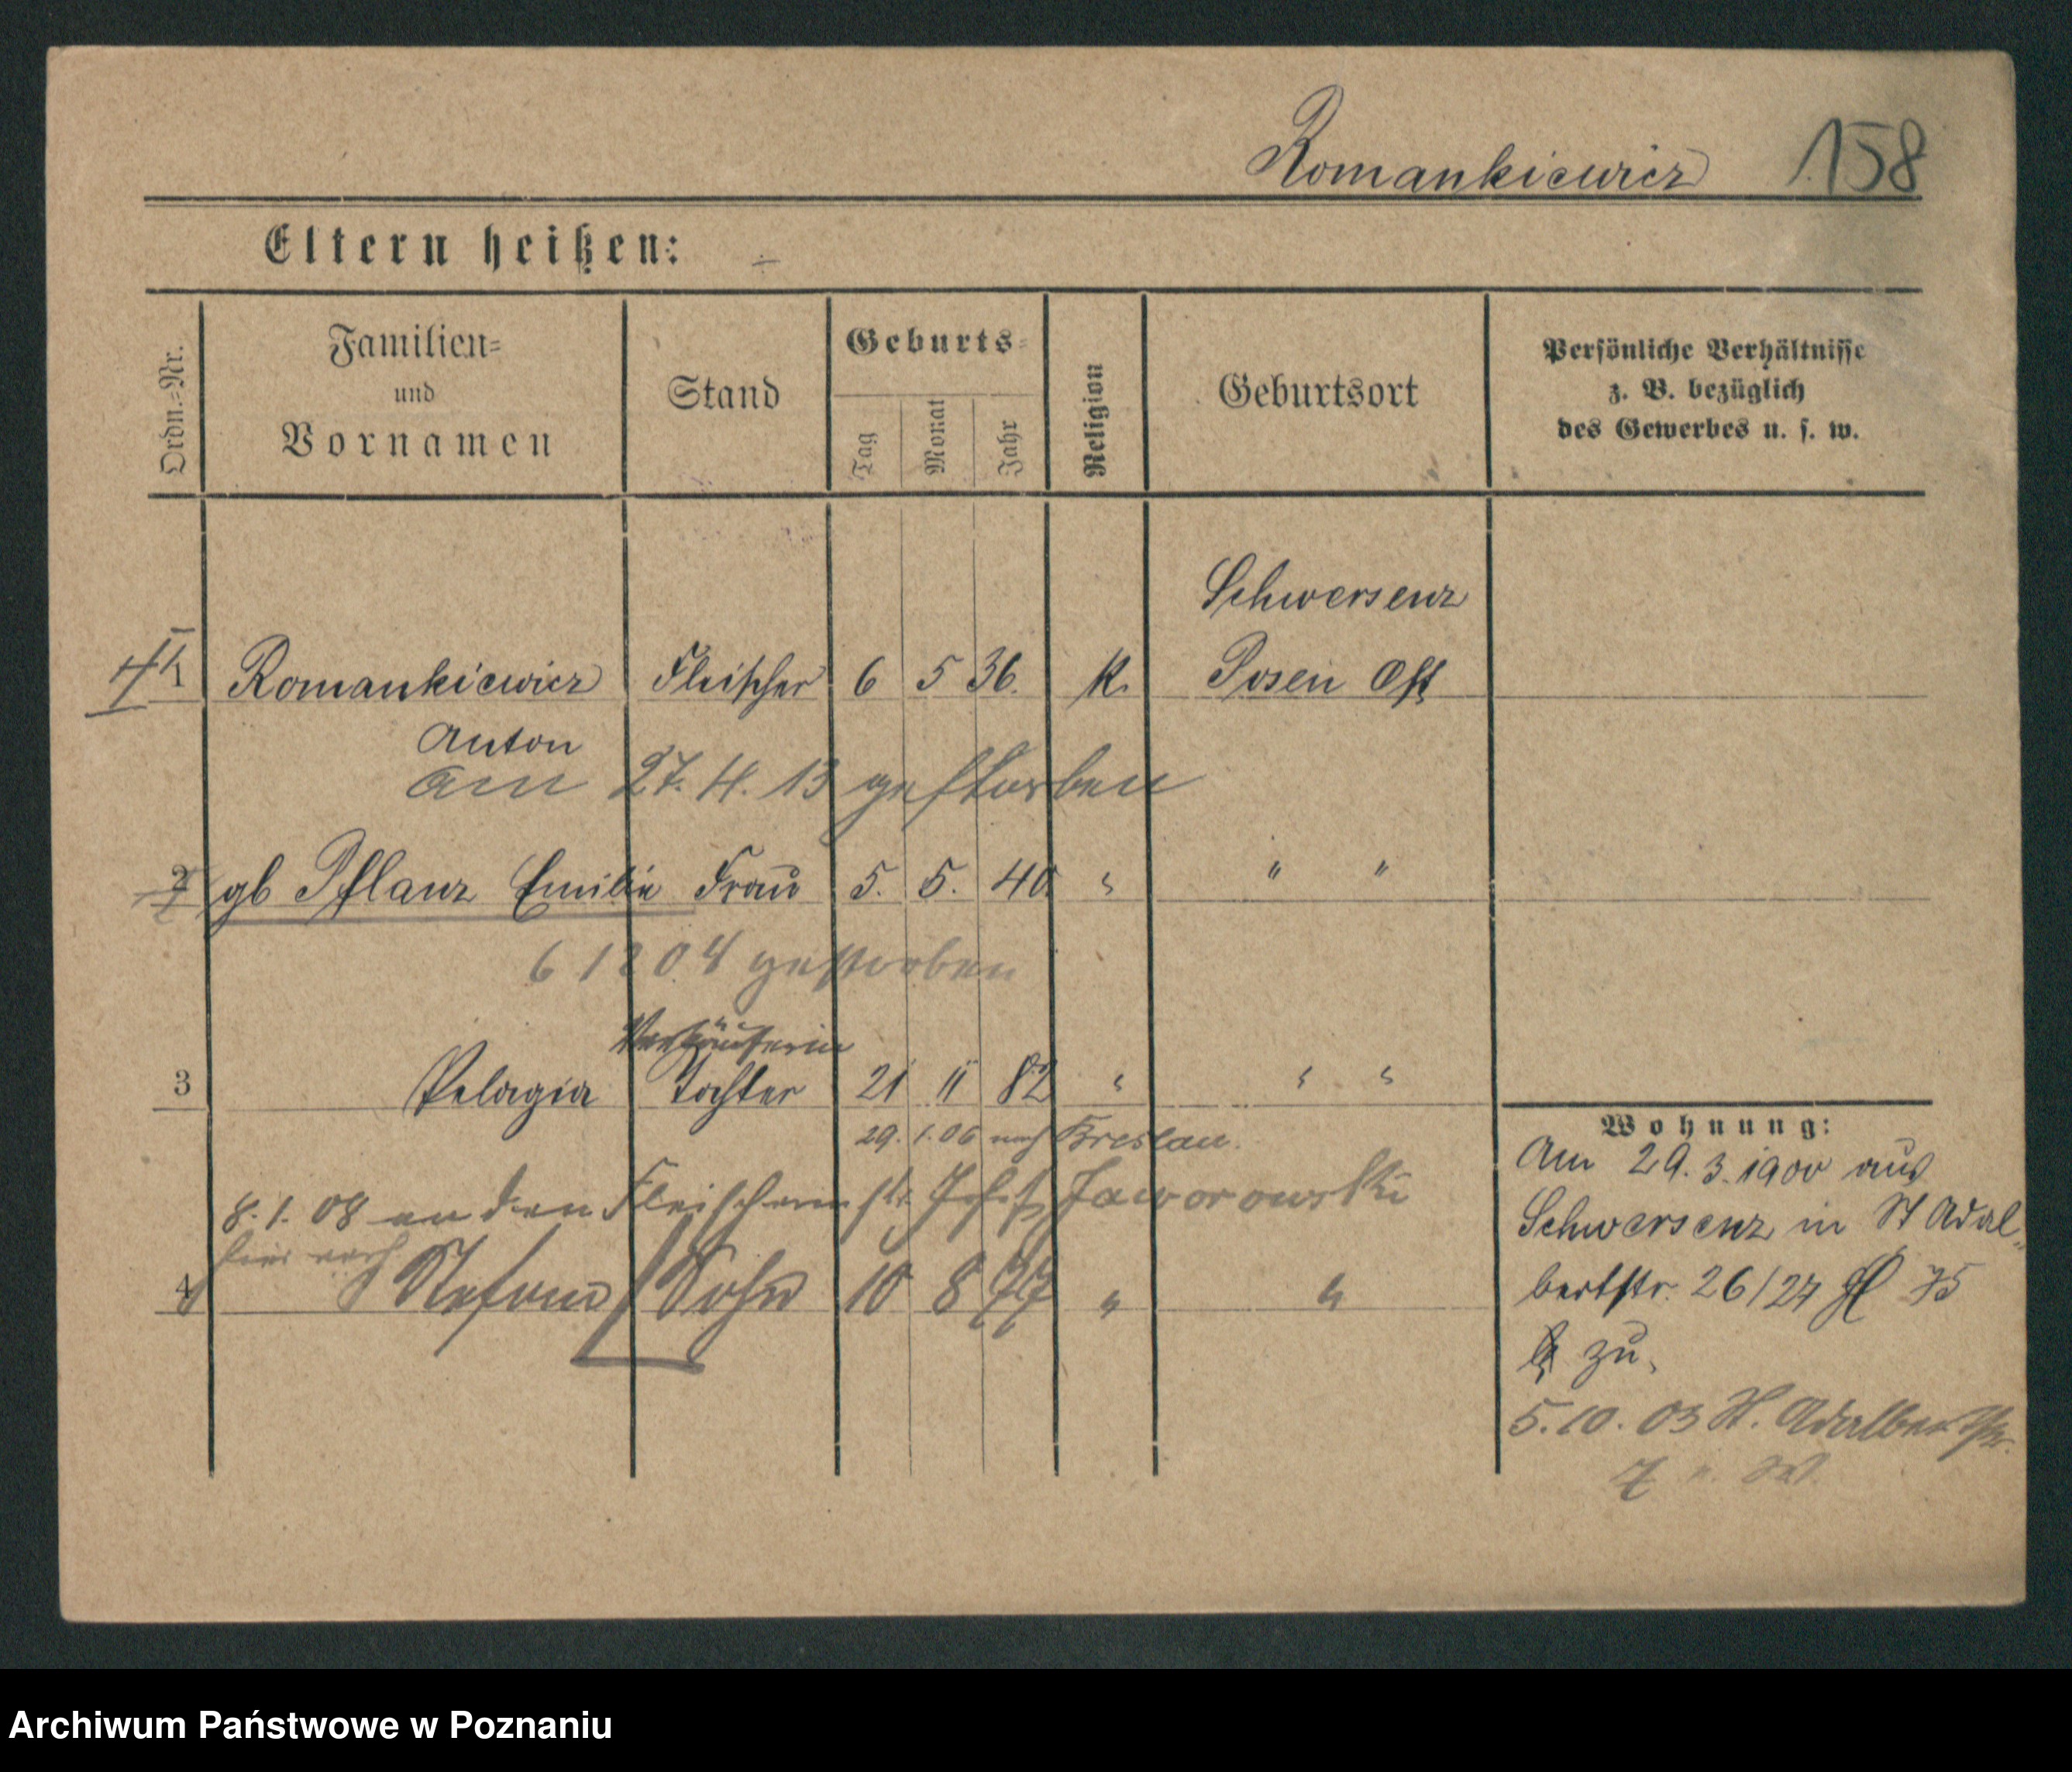 Romankiewicz 158
Eltern heißen: -
Ordn.-Nr.
Familien- und Vornamen
Stand
Geburts-
Tag
Monat
Jahr
Religion
Geburtsort
Persönliche Verhältnisse
z. B. bezüglich
des Gewerbes u. s. w.
Schwersenz
Romankiewicz Fleischer 6 5 36. K. Posen Ost
Anton
am 27. 4. 13 gestorben
2 gb Pflanz Emilie Frau 5. 5. 40. " " "
6 12 04 gestorben
Verkäuferin
3 Pelagia Tochter 21 11 82 " " "
29. 1. 06 nach Breslau.
8. 1. 08 an den Fleischermstr. Josef Jaworowski
hier verh
4 Stefan Sohn 10 8 77 " "
Wohnung:
Am 29. 3. 1900 aus
Schwersenz in St Adal„
bertstr. 26/27 75
zu.
5. 10. 03 St. Adalbertstr.
7
Archiwum Państwowe w Poznaniu